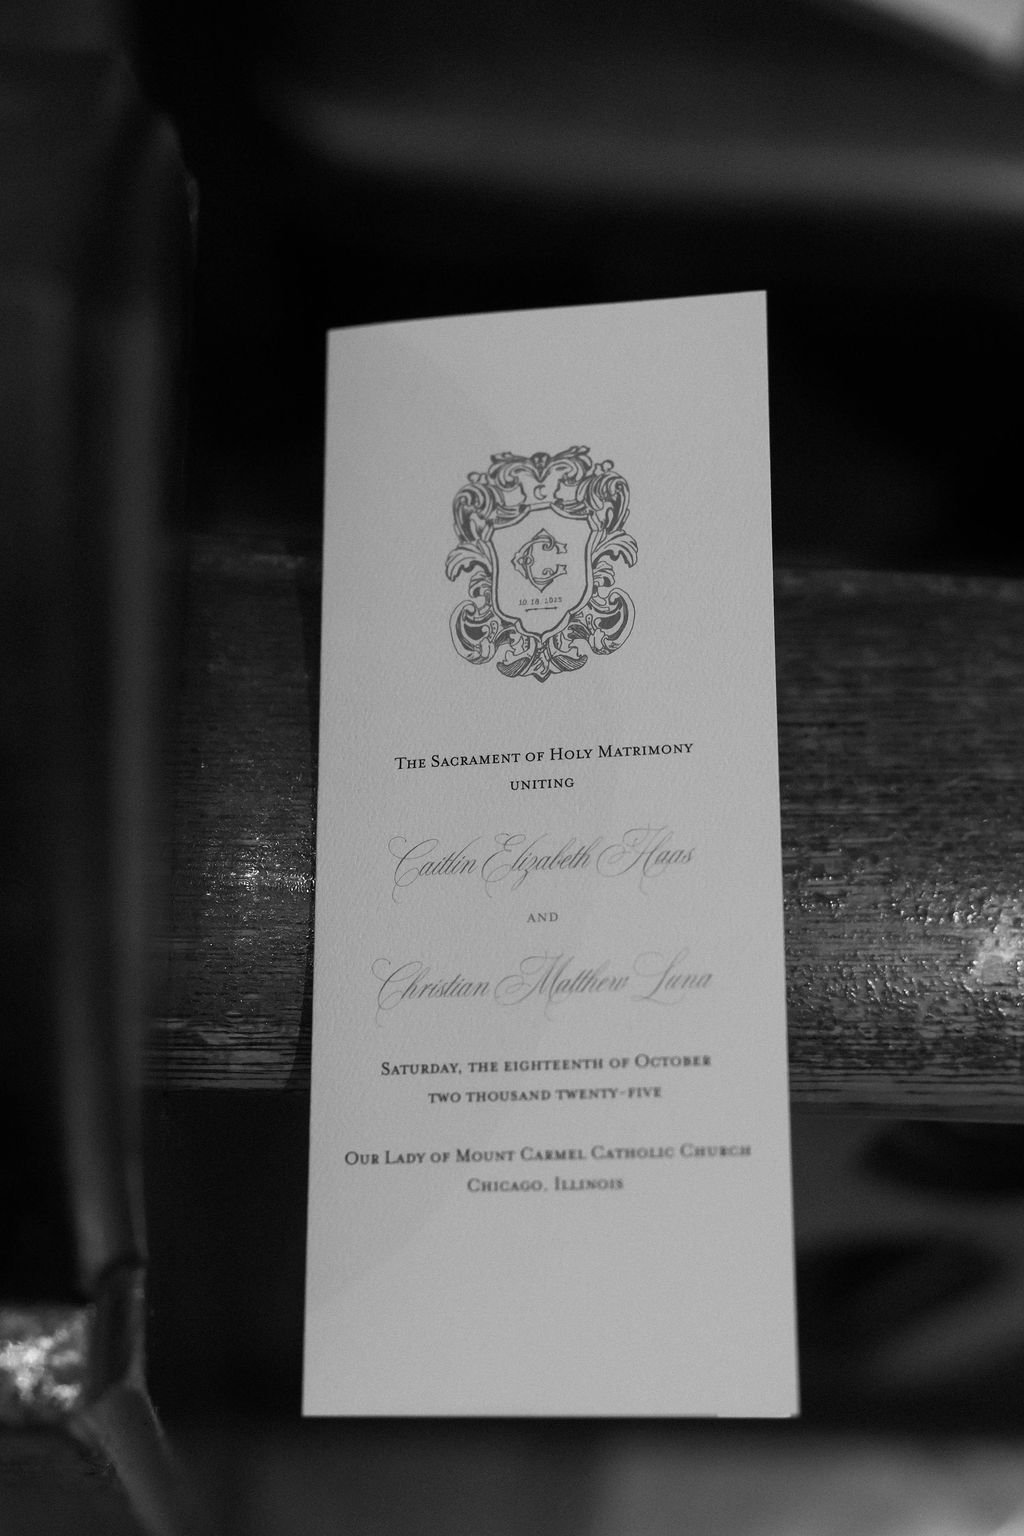 C
10.18.2025
The Sacrament of Holy Matrimony
uniting
Caitlin Elizabeth Haas
and
Christian Matthew Luna
Saturday, the eighteenth of October
two thousand twenty-five
Our Lady of Mount Carmel Catholic Church
Chicago, Illinois